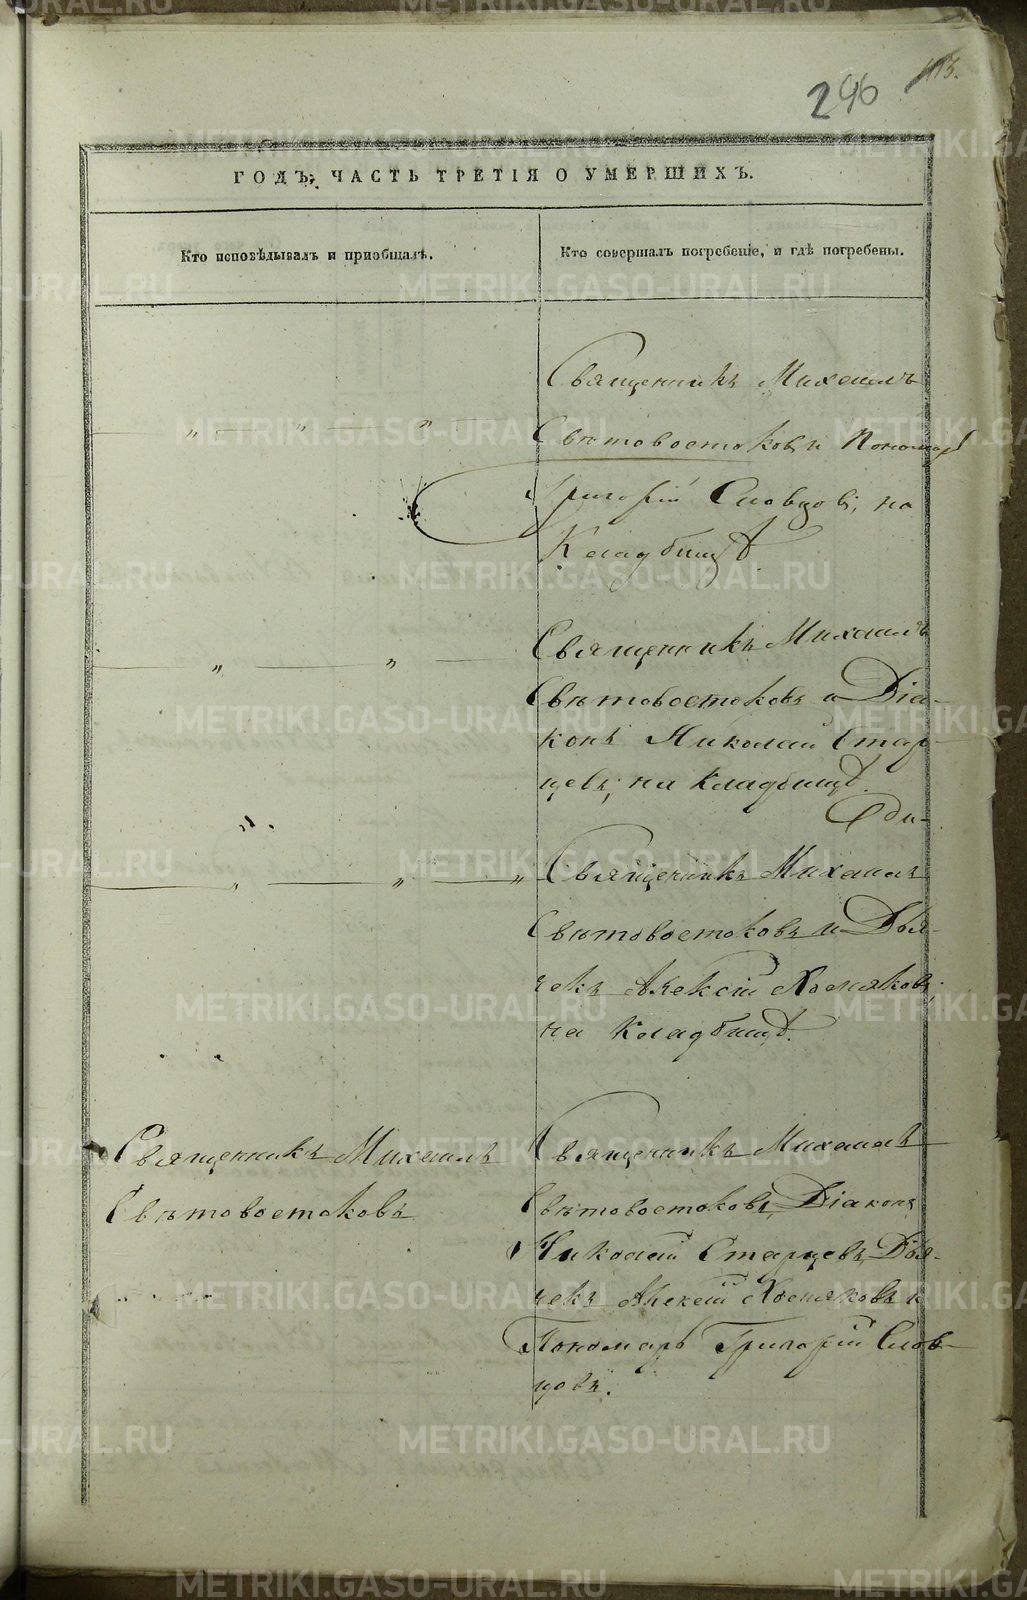 296
113.
ГОДЪ, ЧАСТЬ ТРЕТІЯ О УМЕРШИХЪ.
Кто исповѣдывалъ и приобщалъ.
Кто совершалъ погребеніе, и гдѣ погребены.
Священникъ Михаилъ
" " "
Свѣтовостоковъ и Пономарь
Григорій Словцовъ, на
Кладбищѣ
Священникъ Михаилъ
" "
Свѣтовостоковъ и Діа-
конъ Николай Стар-
цевъ, на Кладбищѣ.
Священникъ Михаилъ
" " "
Свѣтовостоковъ и Дья-
чекъ Алексій Хомяковъ,
на Кладбищѣ.
Священникъ Михаилъ
Свѣтовостоковъ
Священникъ Михаилъ
Свѣтовостоковъ, Діаконъ
Николай Старцевъ, Дья-
чекъ Алексій Хомяковъ и
Пономарь Григорій Слов-
цовъ.
METRIKI.GASO-URAL.RU